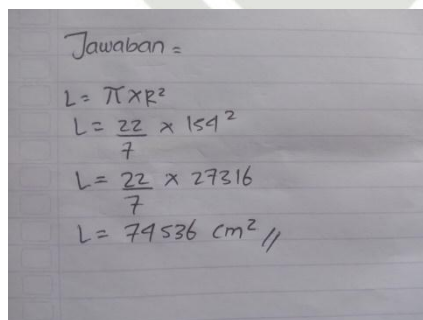 Jawaban =
L = π × R²
L = 22/7 × 154²
L = 22/7 × 27316
L = 74536 cm² //